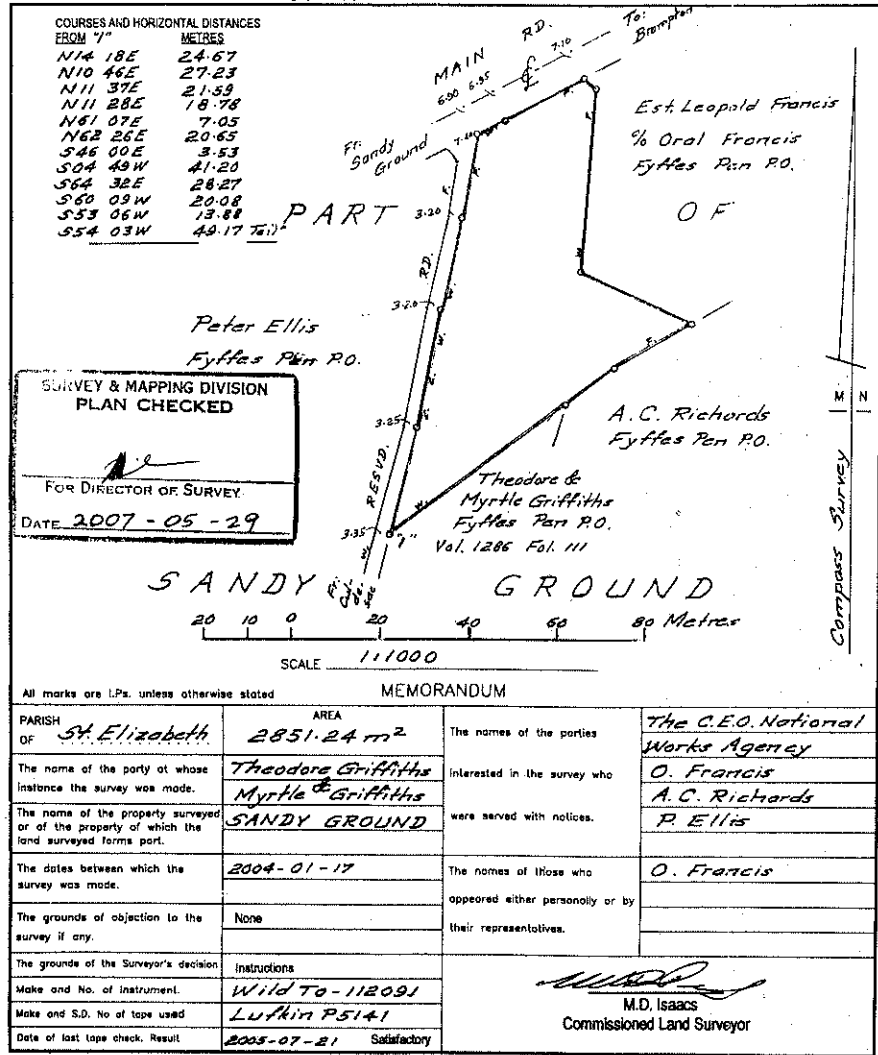 COURSES AND HORIZONTAL DISTANCES
FROM "1" METRES
N14 18E 24.67
N10 46E 27.23
N11 37E 21.59
N11 28E 18.78
N61 07E 7.05
N62 26E 20.65
S46 00E 3.53
S04 49W 41.20
S64 32E 28.27
S60 09W 20.08
S53 06W 13.88
S54 03W 49.17 Till "1"
MAIN RD.
To: Brompton
6.90 6.95 7.10
Fr: Sandy Ground
7.20
Est. Leopold Francis
c/o Oral Francis
Fyffes Pen P.O.
PART OF
3.20
RD.
3.20
Peter Ellis
Fyffes Pen P.O.
SURVEY & MAPPING DIVISION
PLAN CHECKED
FOR DIRECTOR OF SURVEY
DATE 2007-05-29
3.25
RESVD.
3.35
"1"
M N
A.C. Richards
Fyffes Pen P.O.
Theodore &
Myrtle Griffiths
Fyffes Pen P.O.
Vol. 1286 Fol. 111
Compass Survey
SANDY GROUND
Fr: Cul-de-sac
20 10 0 20 40 60 80 Metres
SCALE 1:1000
All marks are I.Ps. unless otherwise stated
MEMORANDUM
PARISH OF St. Elizabeth
AREA
2851.24 m²
The names of the parties
interested in the survey who
were served with notices.
The C.E.O. National
Works Agency
O. Francis
A.C. Richards
P. Ellis
The name of the party at whose
instance the survey was made.
Theodore Griffiths
& Myrtle Griffiths
The name of the property surveyed
or of the property of which the
land surveyed forms part.
SANDY GROUND
The dates between which the
survey was made.
2004-01-17
The names of those who
appeared either personally or by
their representatives.
O. Francis
The grounds of objection to the
survey if any.
None
The grounds of the Surveyor's decision
Instructions
Make and No. of instrument.
Wild To-112091
Make and S.D. No of tape used
Lufkin P5141
Date of last tape check, Result
2005-07-21 Satisfactory
M.D. Isaacs
Commissioned Land Surveyor